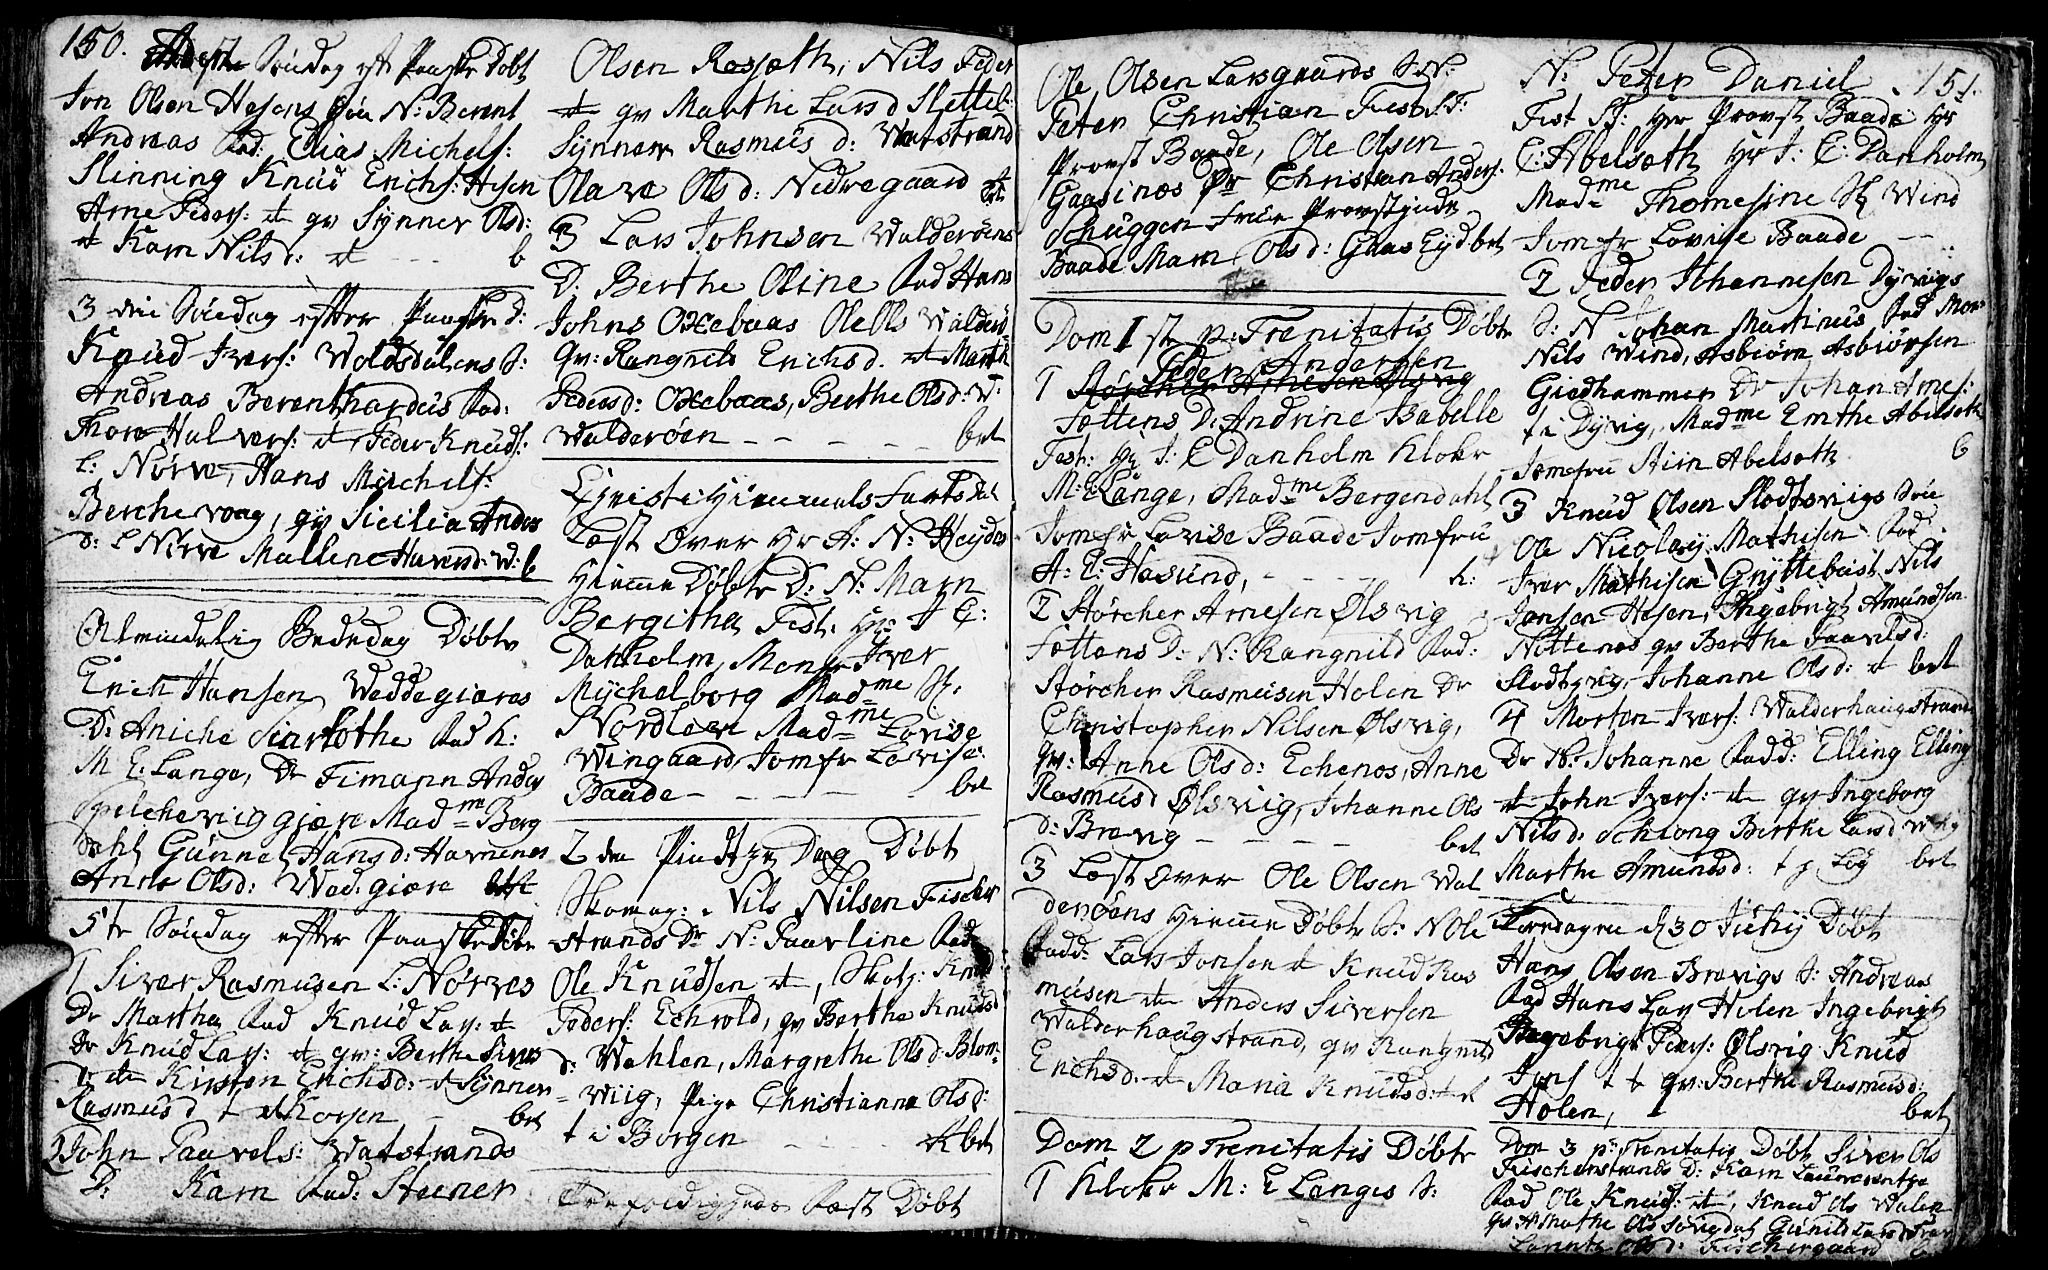 150.
Søndag eft Paaske Døbt
Jon Olsen Hesens Søn N: Berent
Andreas Fad: Elias Michels:
Slinning Knud Erichs: Hesen
Arne Peders: it qv Synner Olsd:
it Karn Nilsd: it - - - b
3 die Søndag efter Paaske D:
Knud Ivers: Woldsdalens S:
Andreas Berenthardus Fad:
Thore Halvers: it Peder Knuds:
L: Nørve, Hans Michels:
Berchevaag, qv Sicilia Anders
d: L Nørve Mallene Havensd: W: b
Almindelig Bededag Døbt
Erich Hansen Weddegiæres
D: Aniche Fad K:
M E: Lange, Dr Timann Anders
Spilchevig giære Madme Berg
dahl Gunnel Hansd: Hamenes
Anne Olsd: Wed-giære bet
5te Søndag efter Paaske Døbt
1 Siver Rasmusen L: Nørves
Dr Martha Fad Knud Lar: it
Dr Knud Lar: it qv: Berthe Sivers
d it Kirsten Erichsd: it Synner
Rasmusd t it Korsen - bet
2 John Paavels: Watstrands
D: Karn Fad: Steener
Olsen Rosseth, Nils Peder
it qv Marthe Larsd Sletteb:
Synner Rasmus d: Watstrand
Olave Olsd: Nedregaard it bet
3 Lars Johnsen Walderøens
D. Berthe Oline Fad Hans
Johns Oxebaas Ole Ols Walderø
qv: Rangnele Erichsd. it Marth
Pedersd: Oxebaas, Berthe Olsd: W:
Walderøen - - - - bet
Christi Himmels Farts Dal
Læst Over Hr A: N: Heydes
Hiemme Døbte D: N: Marn
Bergitha Test. Hr: J E:
Danholm, Monsr Iver
Mychelborg Madme S:
Nordlew Madme Lovise
Wingaard Jomfr Lovise
Baade - - - - - bet
2 den Pindtze Dag Døbt
Skomag: Nils Nilsen Fischer
strands Dr N: Paavline Fad
Ole Knudsen it, Skotz: Knud
Peders: Echrold, qv Berthe Knuds
d: Wahlen, Margrethe Olsd: Blom-
wiig, Pige Christianna Olsd:
t i Borgen - - - bet
Trefoldigheds Fæst Døbt
Ole Olsen Larsgaards S N:
Peter Christian Test: S T:
Provst Baade, Ole Olsen
Gaasenæs Dr Christian Anders:
Schuggen Frue Provstjnde
Baade Marn Olsd: Gaas Eyd bet
Dom 1 st p: Trenitatis Døbt
Peder Andersen
1 Størcher Arnesen Ølsvig
Tøttens D: Andrine Isabelle
Test: Hr J: E Danholm Klokr
M: E Lange, Madme Bergendahl
Jomfr Lovise Baade Jomfru
A: E: Hasund, - - - - h:
2 Størcher Arnesen Ølsvig
Tøttens D: N: Rangnild Fad:
Størcher Rasmusen Holen Dr
Christopher Nilsen Ølsvig,
qv: Anne Olsd: Echenos, Anne
Rasmusd Ølsviig, Johanne Ols
d: Brævig - - - - - bet
3 Læst Over Ole Olsen Wal
derøens Hiemme Døbte S: N Ole
Fadd: Lars Jonsen it Knud Ras
musen it Anders Siversen
Walderhaug strand, qv Rangnild
Erichsd. it Maria Knudsd: it
Dom 2 p Trenitatis Døbt
1 Klokr M: E Langes S:
151.
N: Peter Daniel
Test S T: Herr Provst Baade Hr
E: Abelseth Hr J: E: Danholm
Madme Thomesine Wind
Jomfr Lovise Baade - -
2 Peder Johannesen Dyrvigs
S: N Johan Martinus Fad Mor
Nils Wind, Asbiørn Asbiørsen
Giedhammer Dr Johan Arnes:
t i Dyrvig, Madme Emthe Abelseth
Jomfru Abelseth b
3 Knud Olsen Slodtsvigs Søn
Ole Nicolay Mathisen Fad:
Iver Mathisen Gryttebust, Nils
Jonsen Hesen, Ingebrigt Amundsen
Nottenes qv Berthe Paavelsd:
Slodtsvig, Johanne Olsd: it bet
4 Morten Ivers: Walderhaugstrand
Dr N: Johanne Fadd: Elling Elling
it John Ivers: it qv Ingeborg
Nilsd: Schiong Berthe Larsd
Marthe Amundsd: bet
Torsdagen d 30 July Døbt
Hans Olsen Brævigs S: Andreas
Fad Hans Lar Holen Ingebrigt
Ingebrigt Peers: Ølsvig Knud
Jons t t qv: Berthe Rasmusd:
Holen, bet
Dom 3 p: Trenitatis Døbt Siver Ols
Fischerstrands D: Karn Laurwentze
Fad Ole Knuds: it, Knud Ols Walen
qv A Mathe Ols Sørvigdal Gunild Larsd
Olsd: Fischergaard